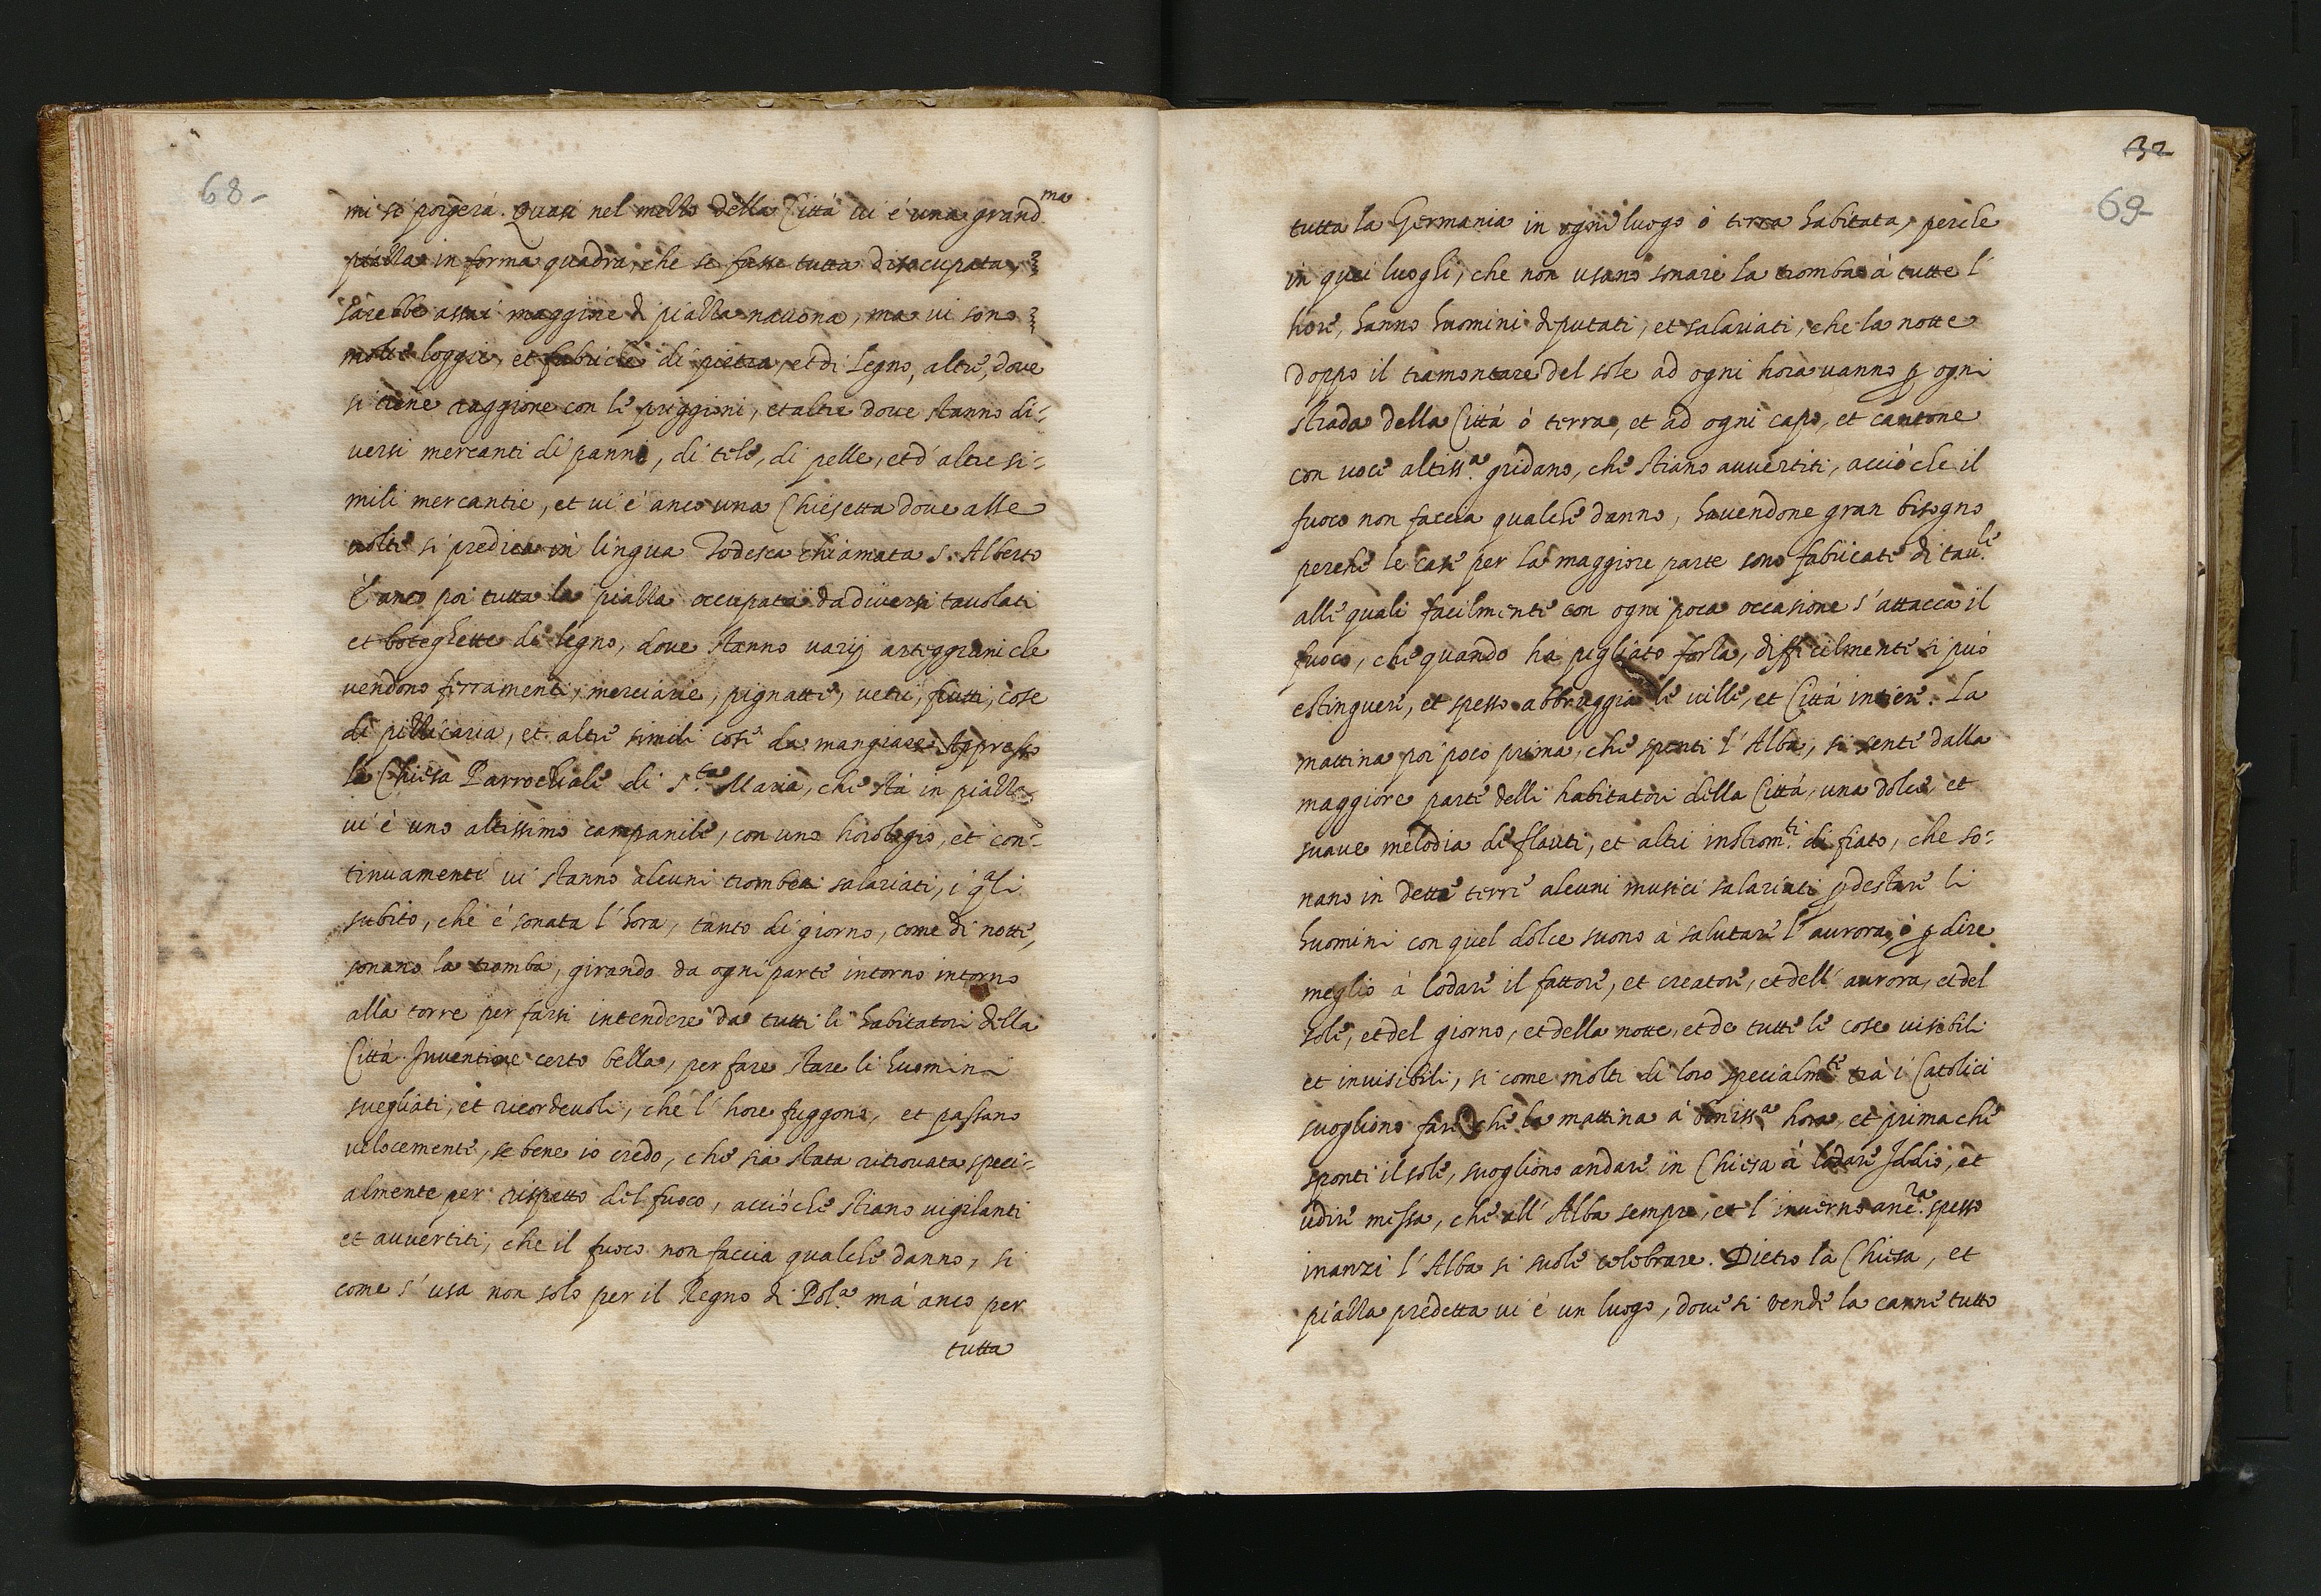 68-
mi si porgerà. Quasi nel mezzo della Città vi è una grand.ma
piazza in forma quadra, che se fusse tutta disocupata,
sarebbe assai maggiore di piazza navona, ma vi sono
molte loggie, et fabriche di pietra, et di legno, altre, dove
si tiene raggione con le priggioni, et altre dove stanno di=
versi mercanti di panni, di tele, di pelle, et d'altre si=
mili mercantie, et vi è anco una Chiesetta dove alle
volte si predica in lingua Todesca chiamata S. Alberto
È anco poi tutta la piazza occupata da diversi tavolati
et boteghette di legno, dove stanno varij arteggiani che
vendono ferramenti, merciarie, pignatte, vetri, frutti, cose
di pizzicaria, et altre simili cose da mangiare. Appresso
la Chiesa Parrochiale di S.ta Maria, che stà in piazza
vi è uno altissimo campanile, con uno horologio, et con=
tinuamente vi stanno alcuni trombeti salariati, i q.ali
subito, che è sonata l'hora, tanto di giorno, come di notte,
sonano la tromba, girando da ogni parte intorno intorno
alla torre per farsi intendere da tutti li habitatori della
Città. Inventione certo bella, per fare stare li huomini
svegliati, et ricordevoli, che l'hore fuggono, et passano
velocemente, se bene io credo, che sia stata ritrovata speci=
almente per rispetto del fuoco, acciò che stiano vigilanti
et avvertiti, che il fuoco non faccia qualche danno, si
come s'usa non solo per il Regno di Pol.a mà anco per
tutta
32
69-
tutta la Germania in ogni luogo ò terra habitata, perche
in quei luoghi, che non usano sonare la tromba à tutte l'
hore, hanno huomini deputati, et salariati, che la notte
doppo il tramontare del sole ad ogni hora vanno p ogni
strada della Città ò terra, et ad ogni capo, et cantone
con voce altiss.a gridano, che stiano avvertiti, acciò che il
fuoco non faccia qualche danno, havendone gran bisogno
perche le case per la maggiore parte sono fabricate di tav.le
alle quali facilmente con ogni poca occasione s'attacca il
fuoco, che quando hà pigliato forza, difficilmente si può
estinguere, et spesso abbruggia le ville, et Città intiere. La
mattina poi poco prima, che spunti l'Alba, si sente dalla
maggiore parte delli habitatori della Città, una dolce, et
suave melodia de flauti, et altri instrom.ti di fiato, che so=
nano in dette terre alcuni musici salariati p destare li
huomini con quel dolce suono à salutare l'aurora, ò p dire
meglio à lodare il fattore, et creatore, et dell'aurora, et del
sole, et del giorno, et della notte, et de tutte le cose visibili
et invisibili, si come molti di loro specialm.te trà i Catolici
sogliono fare che la mattina à boniss.a hora, et prima che
sponti il sole, sogliono andare in Chiesa à lodare Iddio, et
udire messa, che all'Alba sempre, et l'inverno anc.ra spesso
inanzi l'Alba si suole celebrare. Dietro la Chiesa, et
piazza predetta vi è un luogo, dove si vende la carne tutto